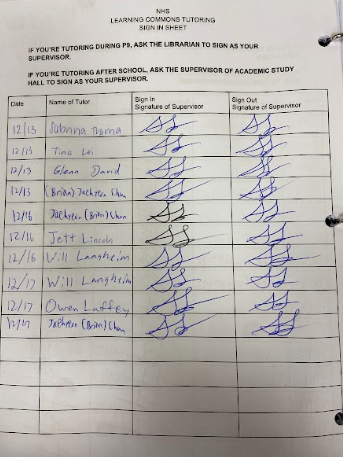 NHS
LEARNING COMMONS TUTORING
SIGN IN SHEET
IF YOU'RE TUTORING DURING P9, ASK THE LIBRARIAN TO SIGN AS YOUR
SUPERVISOR.
IF YOU'RE TUTORING AFTER SCHOOL, ASK THE SUPERVISOR OF ACADEMIC STUDY
HALL TO SIGN AS YOUR SUPERVISOR.
Date Name of Tutor Sign In Signature of Supervisor Sign Out Signature of Supervisor
12/13
12/13 Tina Lei
12/13 Glenn David
12/13 (Brian) Chun
12/16 (Brian) Chun
12/16 Jett Lincoln
12/16 Will Langheim
12/17 Will Langheim
12/17 Owen Laffey
12/17 (Brian) Chun